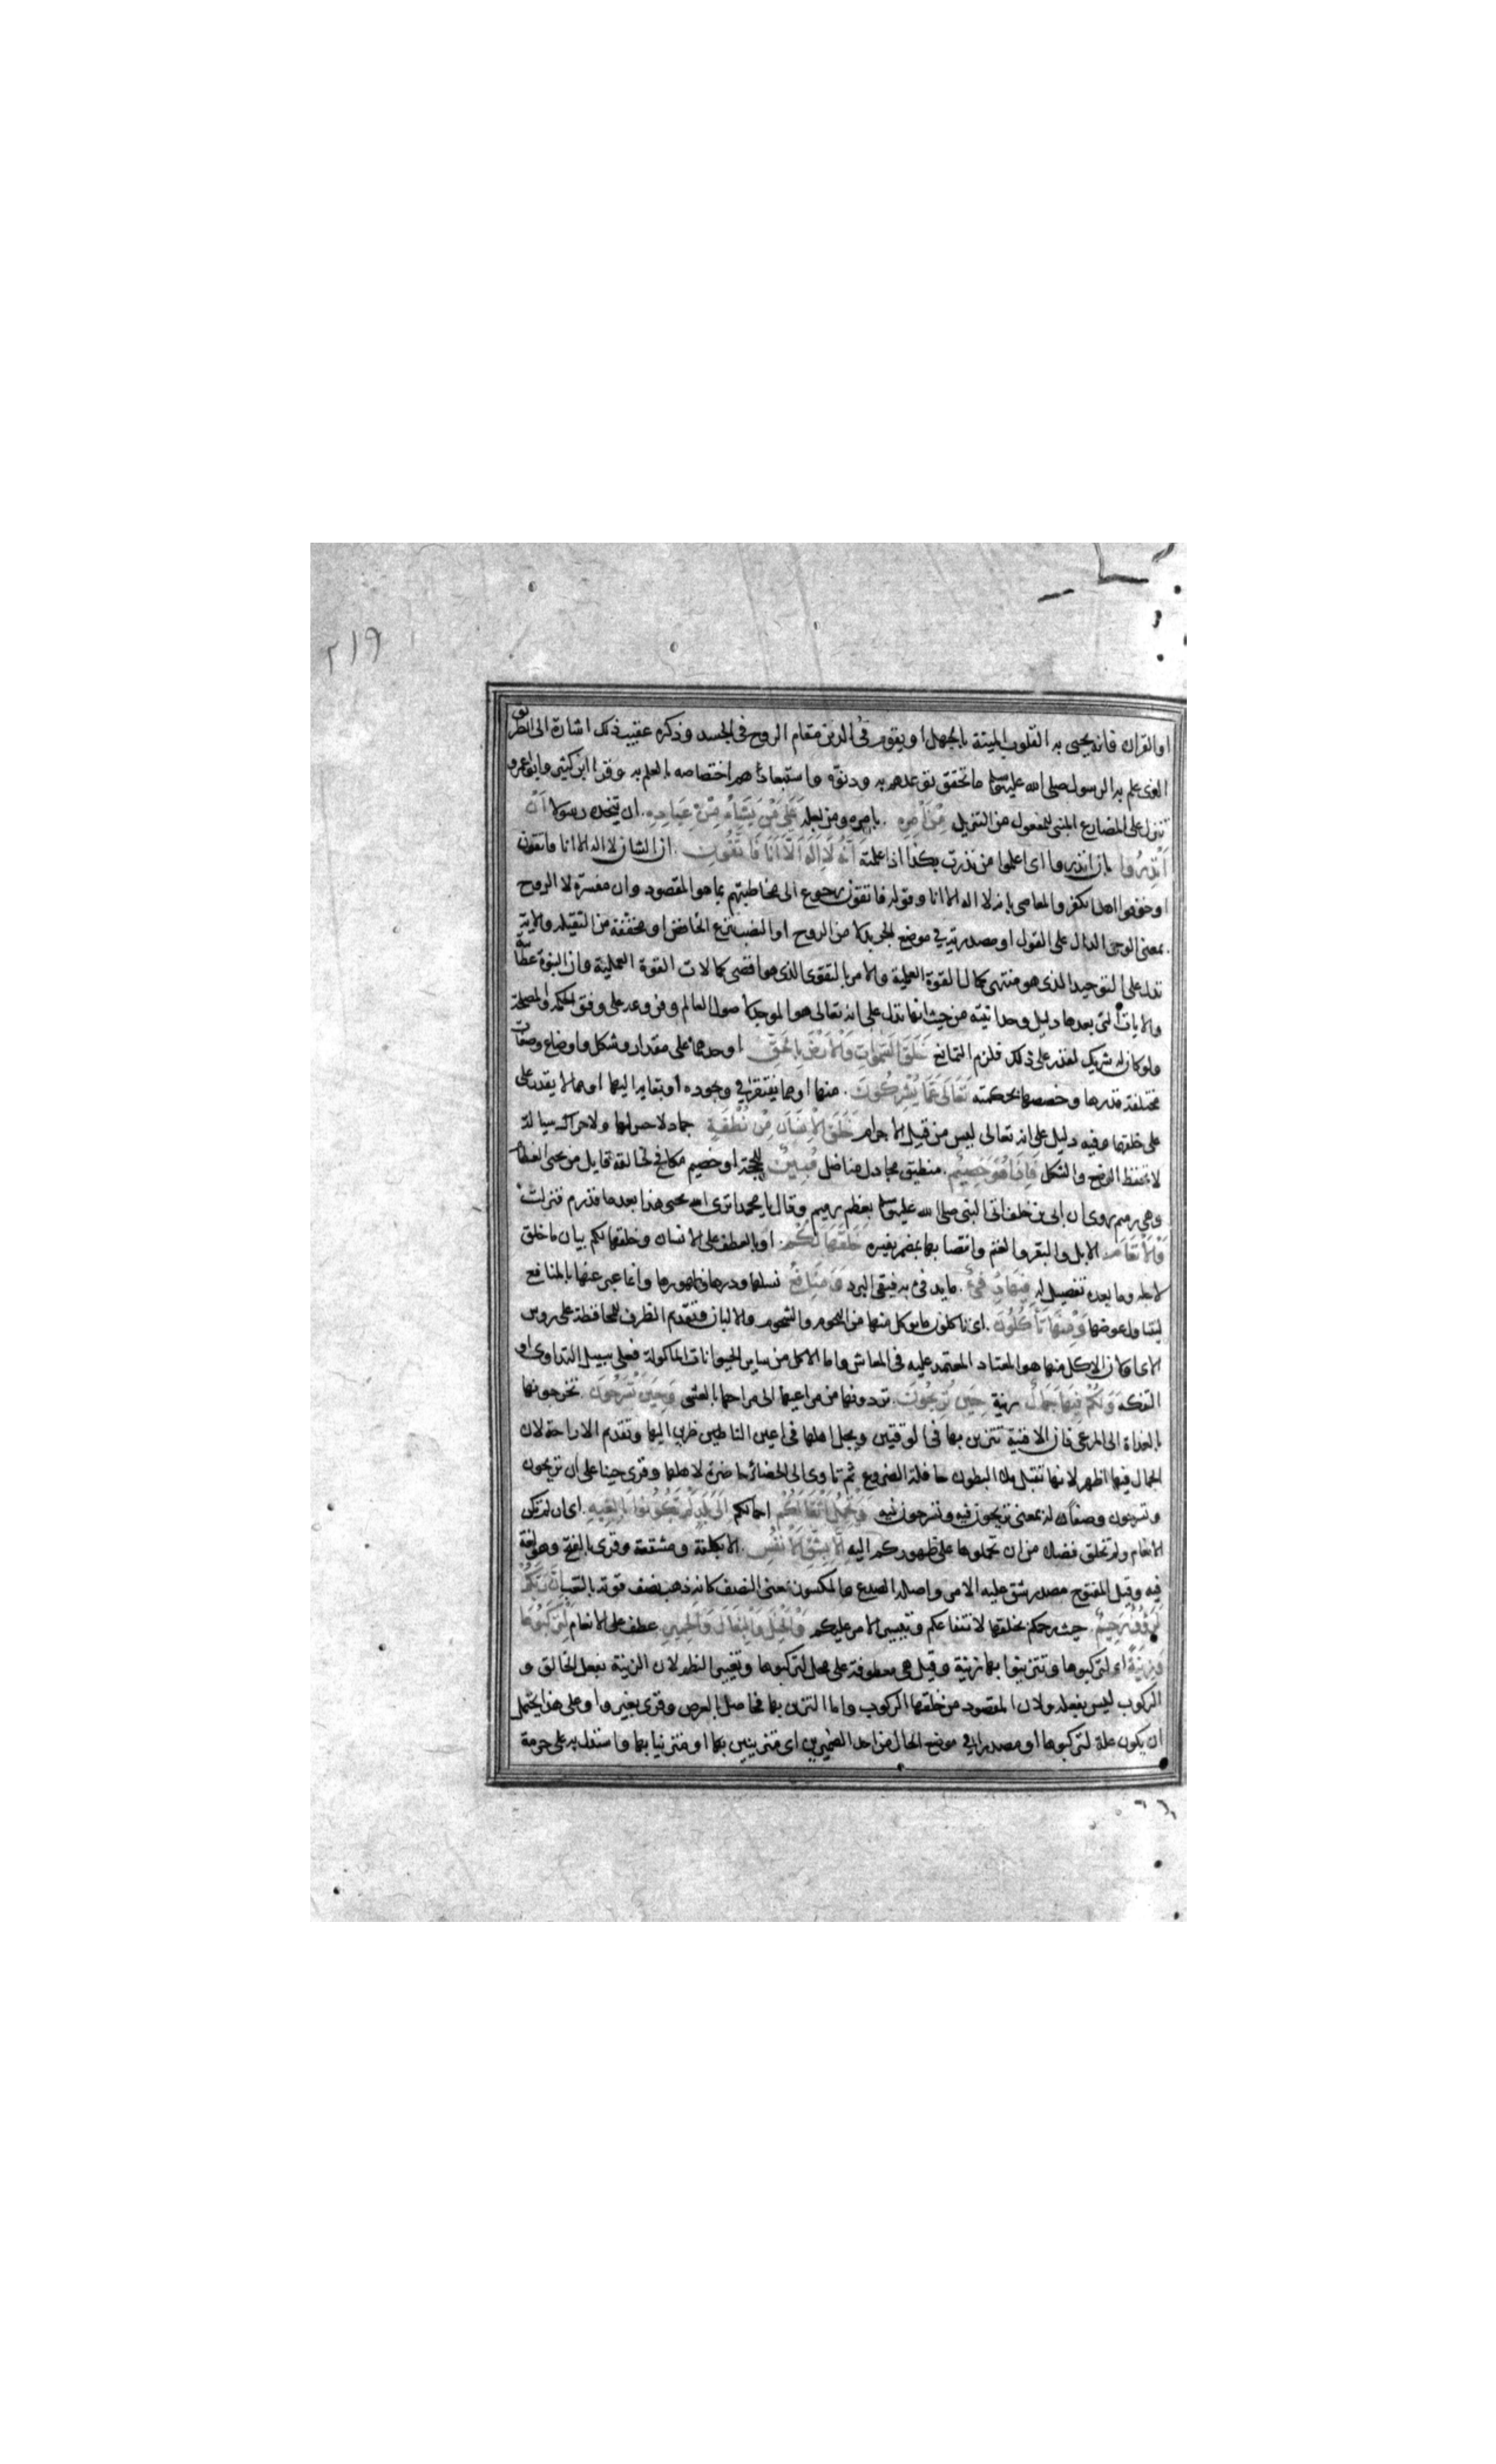 ٢١٩
او القران فانه يحيى به القلوب الميتة بالجهل او يقوم فى الدين مقام الروح فى الجسد وذكره عقيب ذلك اشارة الى الطريق
الذى علم به الرسول صلى الله عليه وسلم ما تحقق توعدهم به ودنوّه واستبعادا هم اختصاصه بالعلم به وقرا ابن كثير وابو عمرو
تنزل على المضارع المبنى للمفعول من التنزيل مِنْ اَمْرِهِ بامره ومن اجله عَلٰى مَنْ يَشَاءُ مِنْ عِبَادِهِ ان يتخذه رسولا اَنْ
اَنْذِرُوا بان انذروا اى اعلموا من نذرت بكذا اذا علمته اَنَّهُ لَا اِلٰهَ اِلَّا اَنَا فَاتَّقُونِ ان الشان لا اله الا انا فاتقون
او خوفوا اهل الكفر والمعاصى بانه لا اله الا انا وقوله فاتقون رجوع الى مخاطبتهم بما هو المقصود وان مفسرة لا الروح
بمعنى الوحى الدال على القول او مصدرية فى موضع الجر بدلا من الروح او النصب بنزع الخافض او مخففة من الثقيلة والاية
تدل على التوحيد الذى هو منتهى كمال القوة العلمية والامر بالتقوى الذى هو اقصى كمالات القوة العملية وان النبوة عطائية
والايات التى بعدها دليل وحدانيته من حيث انها تدل على انه تعالى هو الموجد لاصول العالم وفروعه على وفق الحكمة والمصلحة
ولو كان له شريك لقدر على ذلك فلزم التمانع خَلَقَ السَّمٰوَاتِ وَالْاَرْضَ بِالْحَقِّ اوجدهما على مقدار وشكل واوضاع وصفات
مختلفة قدرها وخصصها بحكمته تَعَالٰى عَمَّا يُشْرِكُونَ منها او مما يفتقر فى وجوده او بقايه اليها او مما لا يقدر على
على خلقها وفيه دليل على انه تعالى ليس من قبيل الاجرام خَلَقَ الْاِنْسَانَ مِنْ نُطْفَةٍ جماد لا حس لها ولا حراك سيالة
لا تحفظ الوضع والشكل فَاِذَا هُوَ خَصِيمٌ منطيق مجادل مناضل مُبِينٌ للحجة او خصيم مكافح لخالقه قايل من يحيى العظام
وهى رميم روى ان ابى بن خلف اتى النبى صلى الله عليه وسلم بعظم رميم وقال يا محمد اترى الله يحيى هذا بعد ما قد رم فنزلت
وَالْاَنْعَامَ الابل والبقر والغنم وانتصابها بمضمر يفسره خَلَقَهَا لَكُمْ او بالعطف على الانسان وخلقها لكم بيان ما خلق
لاجله وما بعده تفصيل له فِيهَا دِفْءٌ ما يدفئ به فيقى البرد وَمَنَافِعُ نسلها ودرها وظهورها وانما عبر عنها بالمنافع
ليتناول عوضها وَمِنْهَا تَأْكُلُونَ اى تاكلون ما يوكل منها من اللحوم والشحوم والالبان فتقديم الظرف للمحافظة على روس
الاى او لان الاكل منها هو المعتاد المعتمد عليه فى المعاش واما الاكل من ساير الحيوانات الماكولة فعلى سبيل التداوى او
التفكه وَلَكُمْ فِيهَا جَمَالٌ زينة حِينَ تُرِيحُونَ تردونها من مراعيها الى مراحها بالعشى وَحِينَ تَسْرَحُونَ تخرجونها
بالغداة الى المرعى فان الافنية تتزين بها فى الوقتين ويجل اهلها فى اعين الناظرين اليها وتقديم الاراحة لان
الجمال فيها اظهر لانها تقبل ملاى البطون حافلة الضروع ثم تاوى الى الحظائر حاضرة لاهلها وقرى حينا على ان تريحون
وتسرحون وصفان له بمعنى تريحون فيه وتسرحون فيه وَتَحْمِلُ اَثْقَالَكُمْ احمالكم اِلٰى بَلَدٍ لَمْ تَكُونُوا بَالِغِيهِ اى ان لم تكن
الانعام ولم تخلق فضلا من ان تحملوها على ظهوركم اليه اِلَّا بِشِقِّ الْاَنْفُسِ الا بكلفة ومشقة وقرى بالفتح وهو لغة
فيه وقيل المفتوح مصدر شق عليه الامر واصله الصدع والمكسور بمعنى النصف كانه ذهب نصف قوته بالتعب اِنَّ رَبَّكُمْ
لَرَؤُفٌ رَحِيمٌ حيث رحمكم بخلقها لانتفاعكم وتيسير الامر عليكم وَالْخَيْلَ وَالْبِغَالَ وَالْحَمِيرَ عطف على الانعام لِتَرْكَبُوهَا
وَزِينَةً اى لتركبوها وتتزينوا بها زينة وقيل هى معطوفة على محل لتركبوها وتغيير النظم لان الزينة بفعل الخالق و
الركوب ليس بفعله ولان المقصود من خلقها الركوب واما التزين بها فحاصل بالعرض وقرى بغير واو وعلى هذا يحتمل
ان يكون علة لتركبوها او مصدرا فى موضع الحال من احد الضميرين اى متزينين بها او متزينا بها واستدل به على حرمة